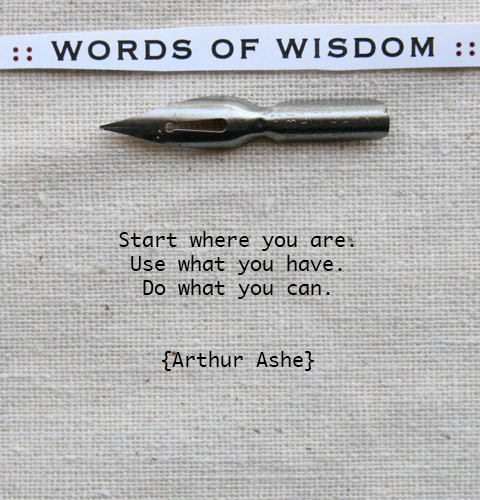 :: WORDS OF WISDOM ::
Start where you are.
Use what you have.
Do what you can.
{Arthur Ashe}